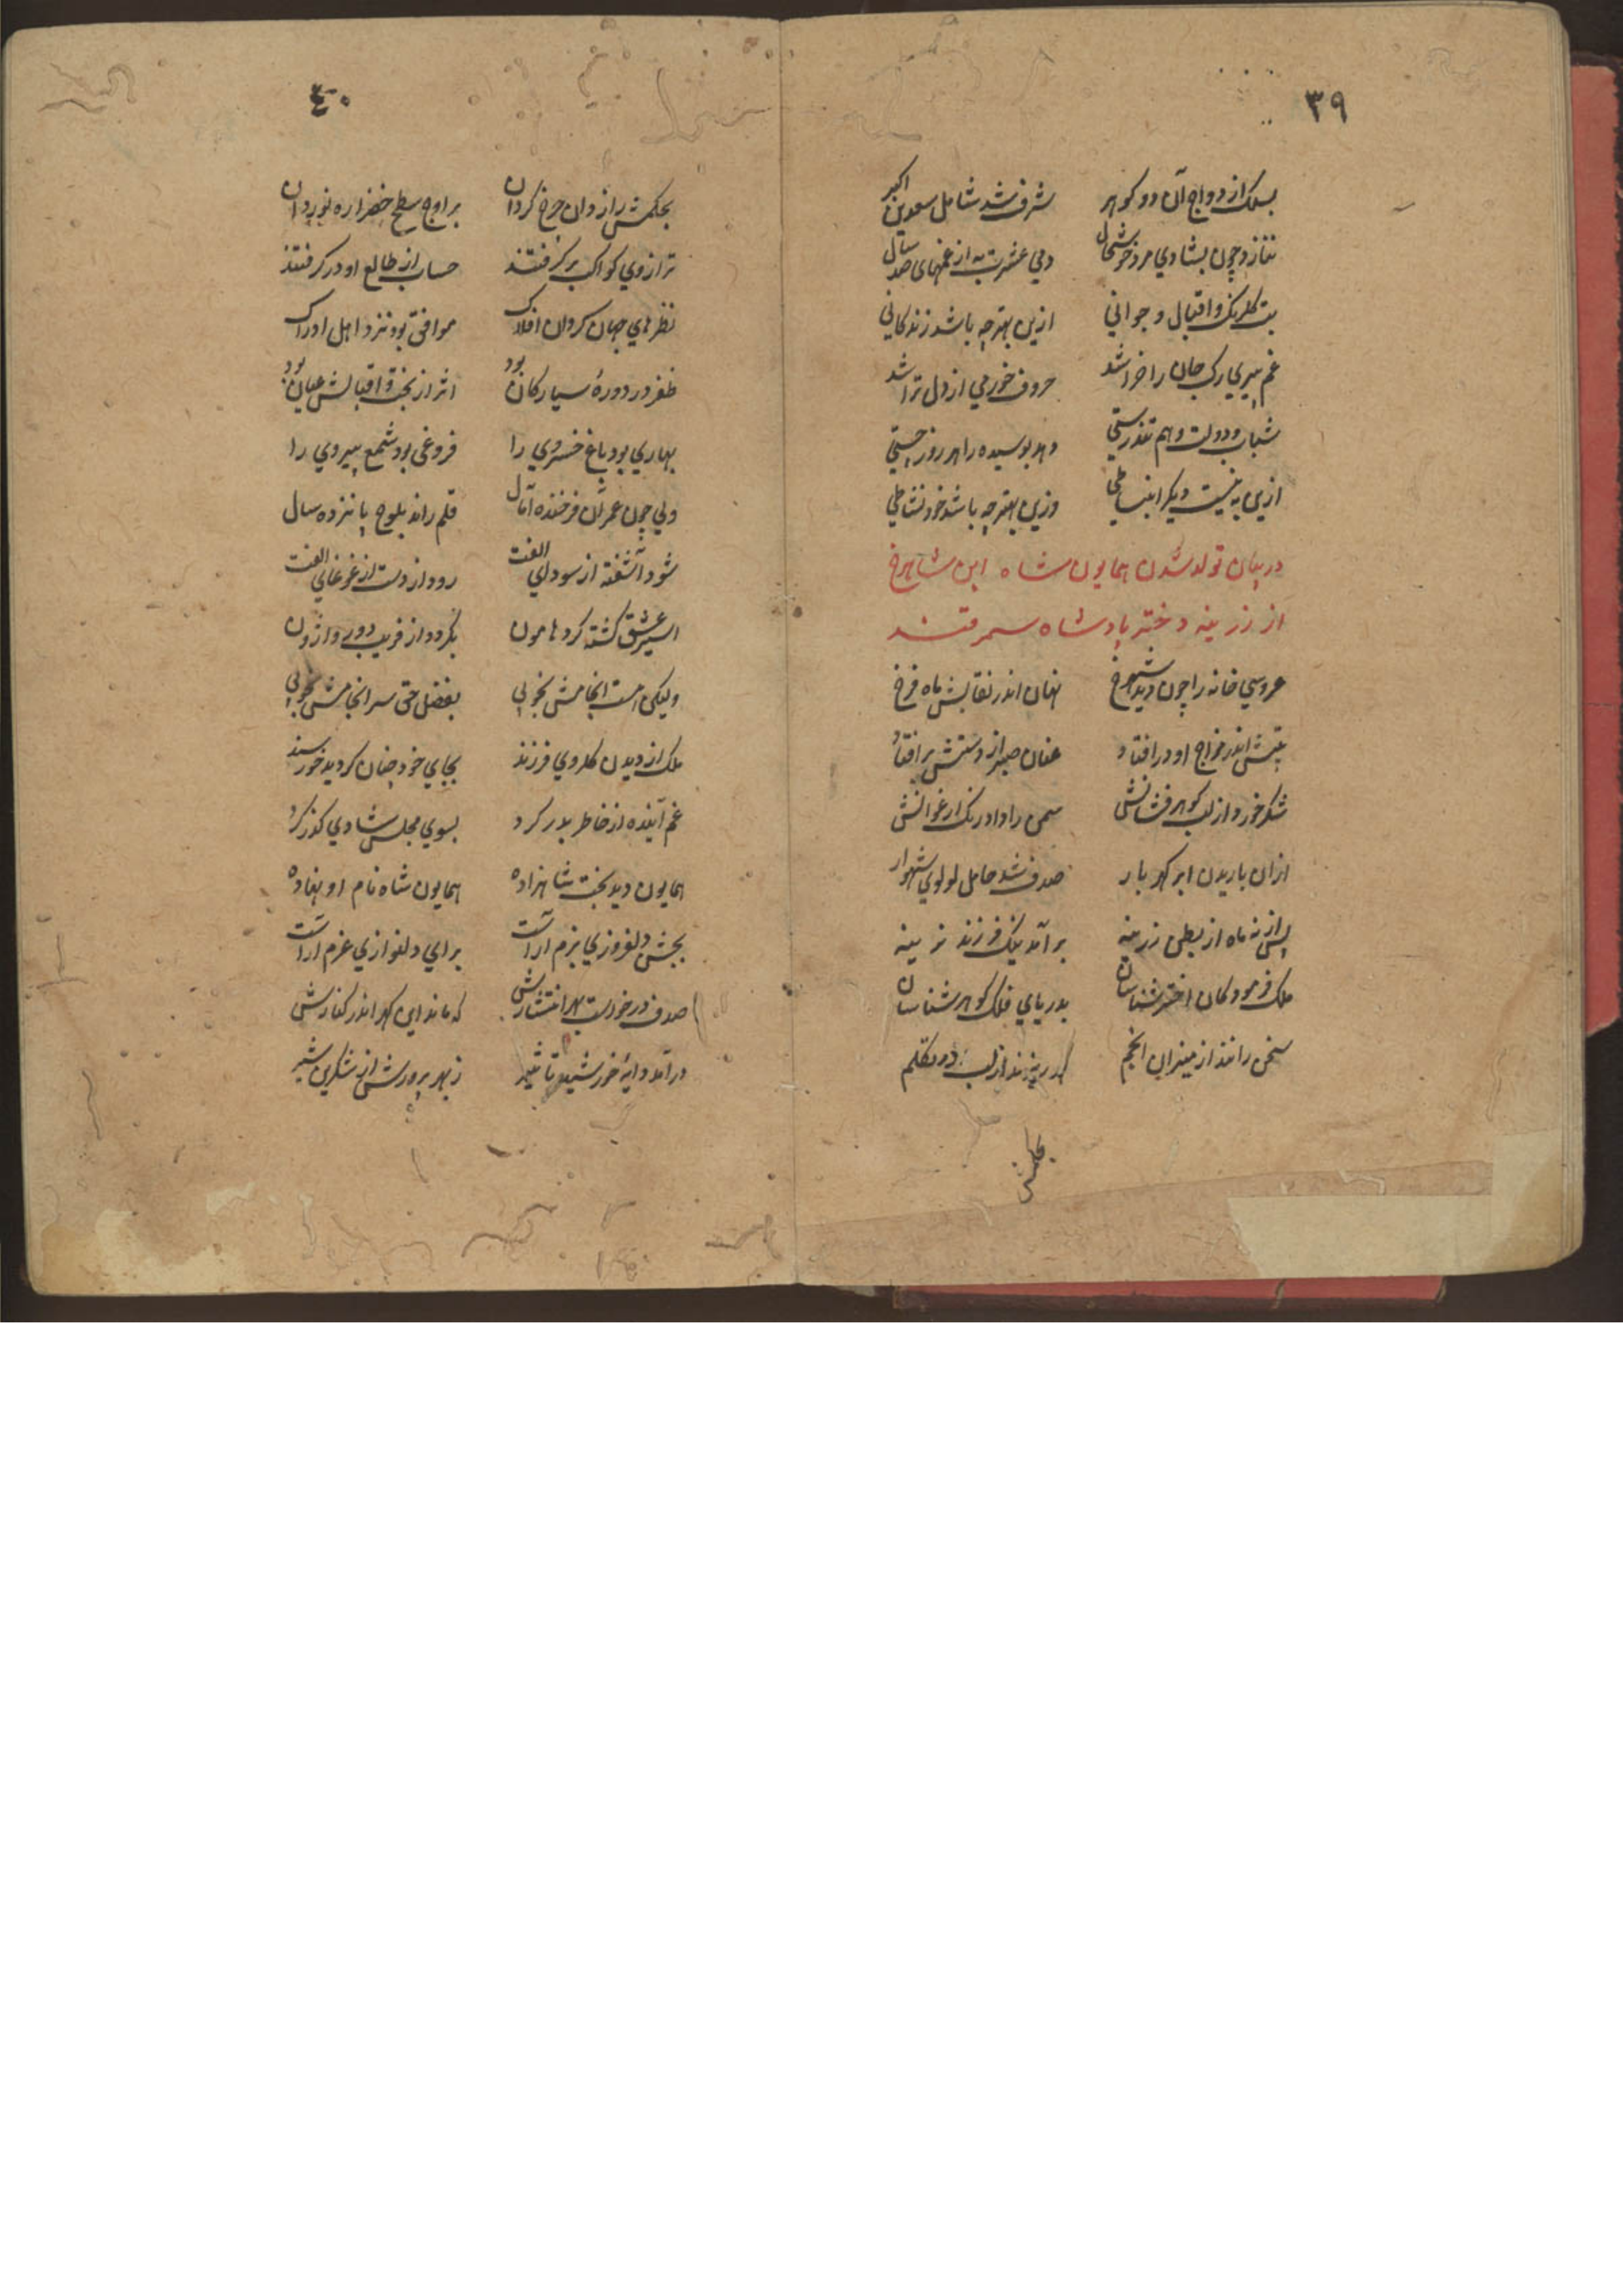 ۳۹
بسلک ازدواج آن دو کوهر شرف شد شامل سعدین اکبر
نتازد چون بشادي مرد خوشحال دمی عشرت به از غمهای صد سال
بت کلرنک و اقبال و جوانی ازین بهتر چه باشد زندکانی
غم پیری رک جان را خراشد حروف خورمی از دل تراشد
شباب و دولت و هم تندرستی دهد بوسیده را هر روز چستی
ازین به نیست دیکر انبساطی وزین بهتر چه باشد خود نشاطی
در بیان تولد شدن همایون شاه ابن شاهرخ
از زرینه دختر پادشاه سمرقند
عروسی خانه را چون دید شهرخ نهان اندر نقابش ماه فرخ
تپش اندر مزاج او در افتاد عنان صبر از دستش بر افتاد
شکر خورد از لب کوهر فشانش سمن را داد رنک ارغوانش
ازان باریدن ابر کهر بار صدف شد حامل لولوی شهوار
پس از نه ماه از بطن زرینه برآمد نیک فرزند نرینه
ملک فرمود کان اختر شناسان بدریای فلک کوهر شناسان
سخن رانند از میزان انجم کهر ریزند از لب در تکلم
بحکمش
۴۰
بحکمش رازدان چرخ کردان بر اوج سطح خضرا ره نوردان
ترازوی کواکب بر کرفتند حساب از طالع او در کرفتند
نظرهای جهان کردان افلاک موافق بود نزد اهل ادراک
ظفر در دورهٔ سیارکان بود اثر از بخت و اقبالش عیان بود
بهاری بود باغ خسروی را فروغی بود شمع پیروی را
ولی چون عمر آن فرخنده آمال قلم راند بلوح پانزده سال
شود آشفته از سودای الفت رود از دست از غوغای الفت
اسیر عشق کشته کرد هامون بکردد از فریب دور واژون
ولیکن هست انجامش بخوبی بفضل حق سرانجامش بخوبی
ملک از دیدن کلروی فرزند بجای خود چنان کردید خورسند
غم آینده از خاطر بدر کرد بسوی مجلس شادی کذر کرد
همایون دید بخت شاهزاده همایون شاه نام او نهاده
بجشن دلفروزی بزم آراست برای دلنوازی عزم آراست
صدف در خورد بهر انتشارش که ماند این کهر اندر کنارش
درآمد دایهٔ خورشید تاثیر ز بهر پرورش از شکرین شیر